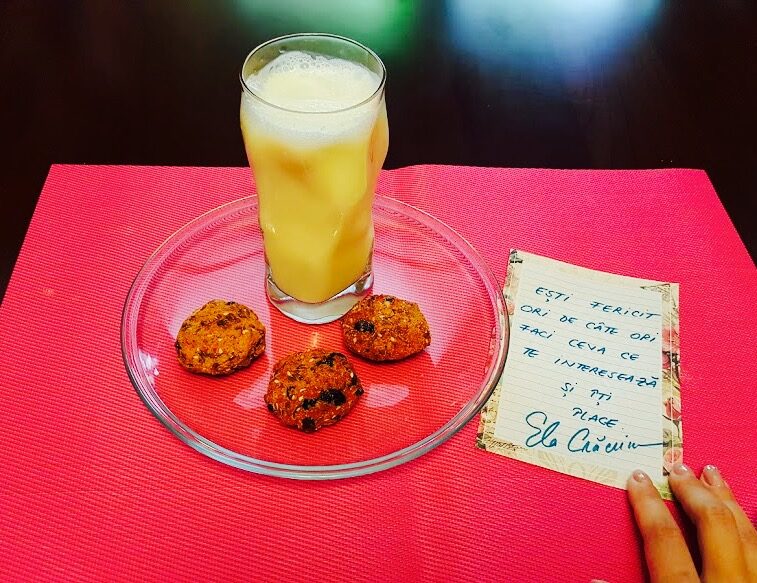 EȘTI FERICIT
ORI DE CÂTE ORI
FACI CEVA CE
TE INTERESEAZĂ
ȘI ÎȚI
PLACE.
Ela Crăciun